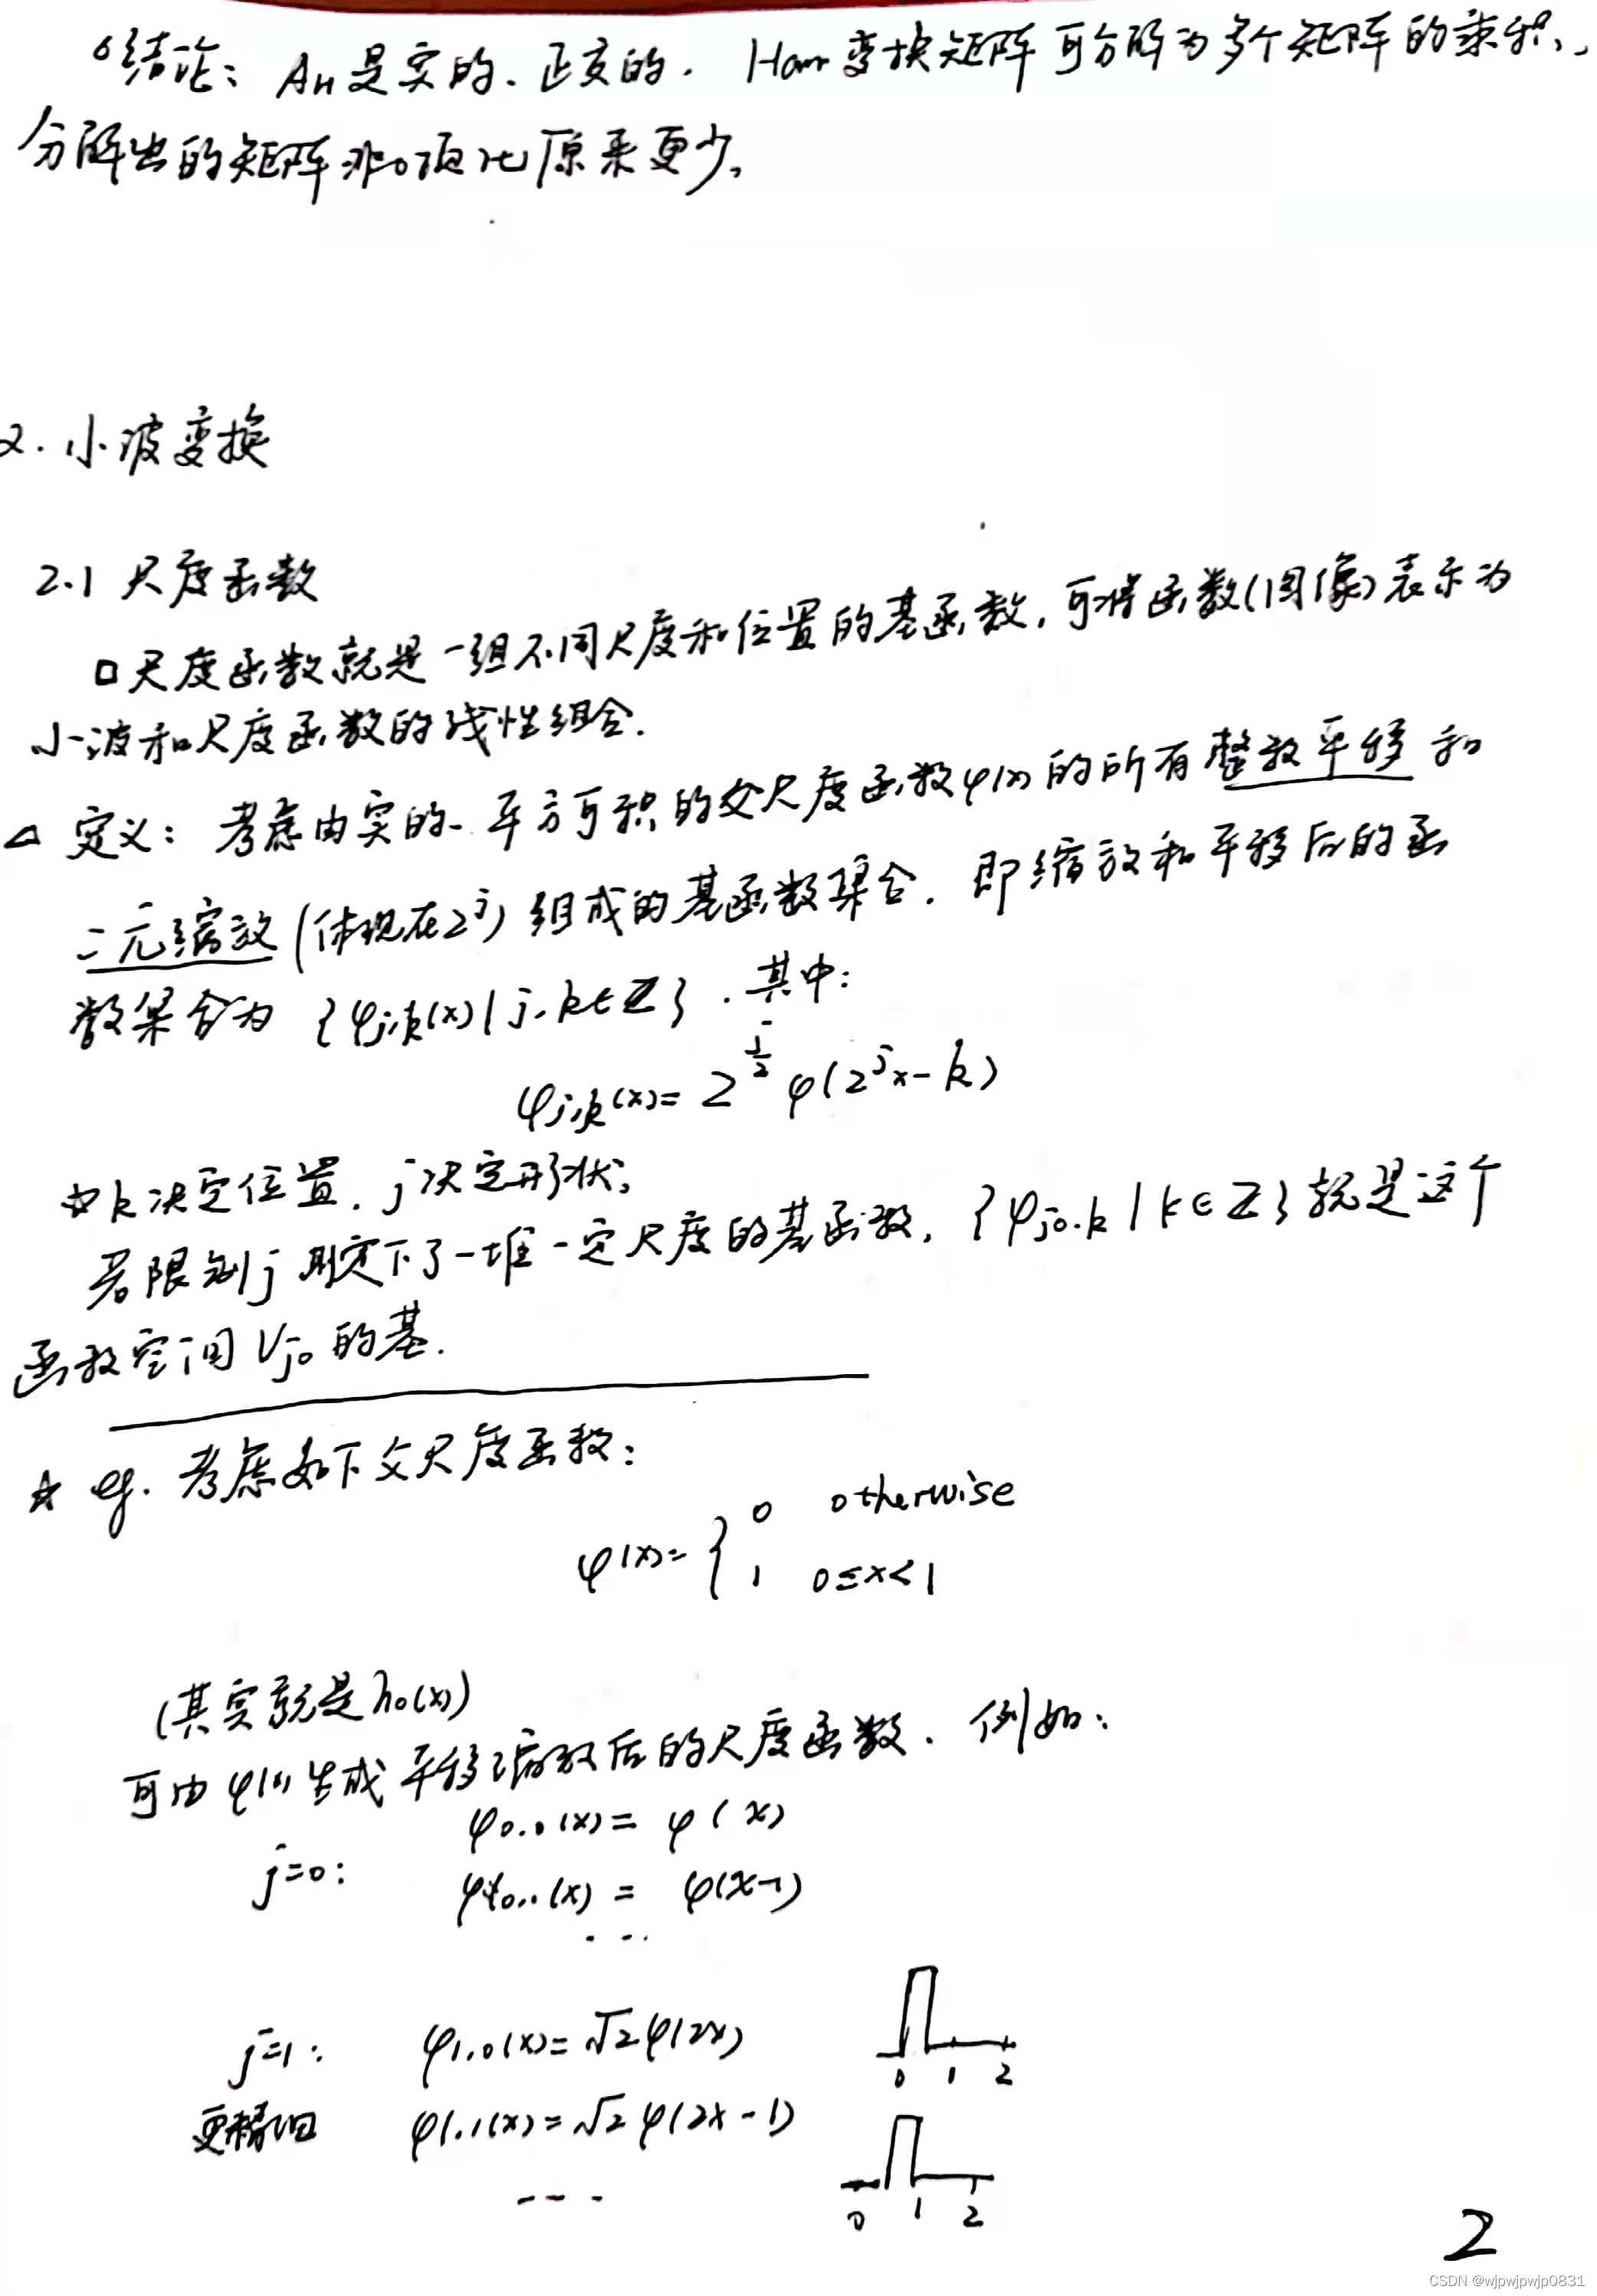 结论：AH是实的、正交的. Haar变换矩阵可分解为多个矩阵的乘积，
分解出的矩阵非0项比原来更少。
2. 小波变换
2.1 尺度函数
口尺度函数就是一组不同尺度和位置的基函数，可将函数(图像)表示为
小波和尺度函数的线性组合.
△ 定义：考虑由实的、平方可积的父尺度函数φ(x)的所有整数平移和
二元缩放(体现在2^j)组成的基函数集合. 即缩放和平移后的函
数集合为 {φj,k(x) | j,k∈Z}. 其中:
φj,k(x)= 2^(j/2) φ(2^j x-k)
k决定位置, j决定形状;
若限制j则定下了一堆一定尺度的基函数, {φj0,k | k∈Z}就是这个
函数空间Vj0的基.
☆ eg. 考虑如下父尺度函数:
φ(x)= { 0 otherwise
1 0≤x<1
(其实就是h0(x))
可由φ(x)生成平移缩放后的尺度函数. 例如:
φ0,0(x)= φ(x)
j=0: φ0,1(x) = φ(x-1)
...
j=1: φ1,0(x)=√2φ(2x)
0 1 2
更精细 φ1,1(x)=√2φ(2x-1)
---
0 1 2
2
CSDN @wjpwjpwjp0831